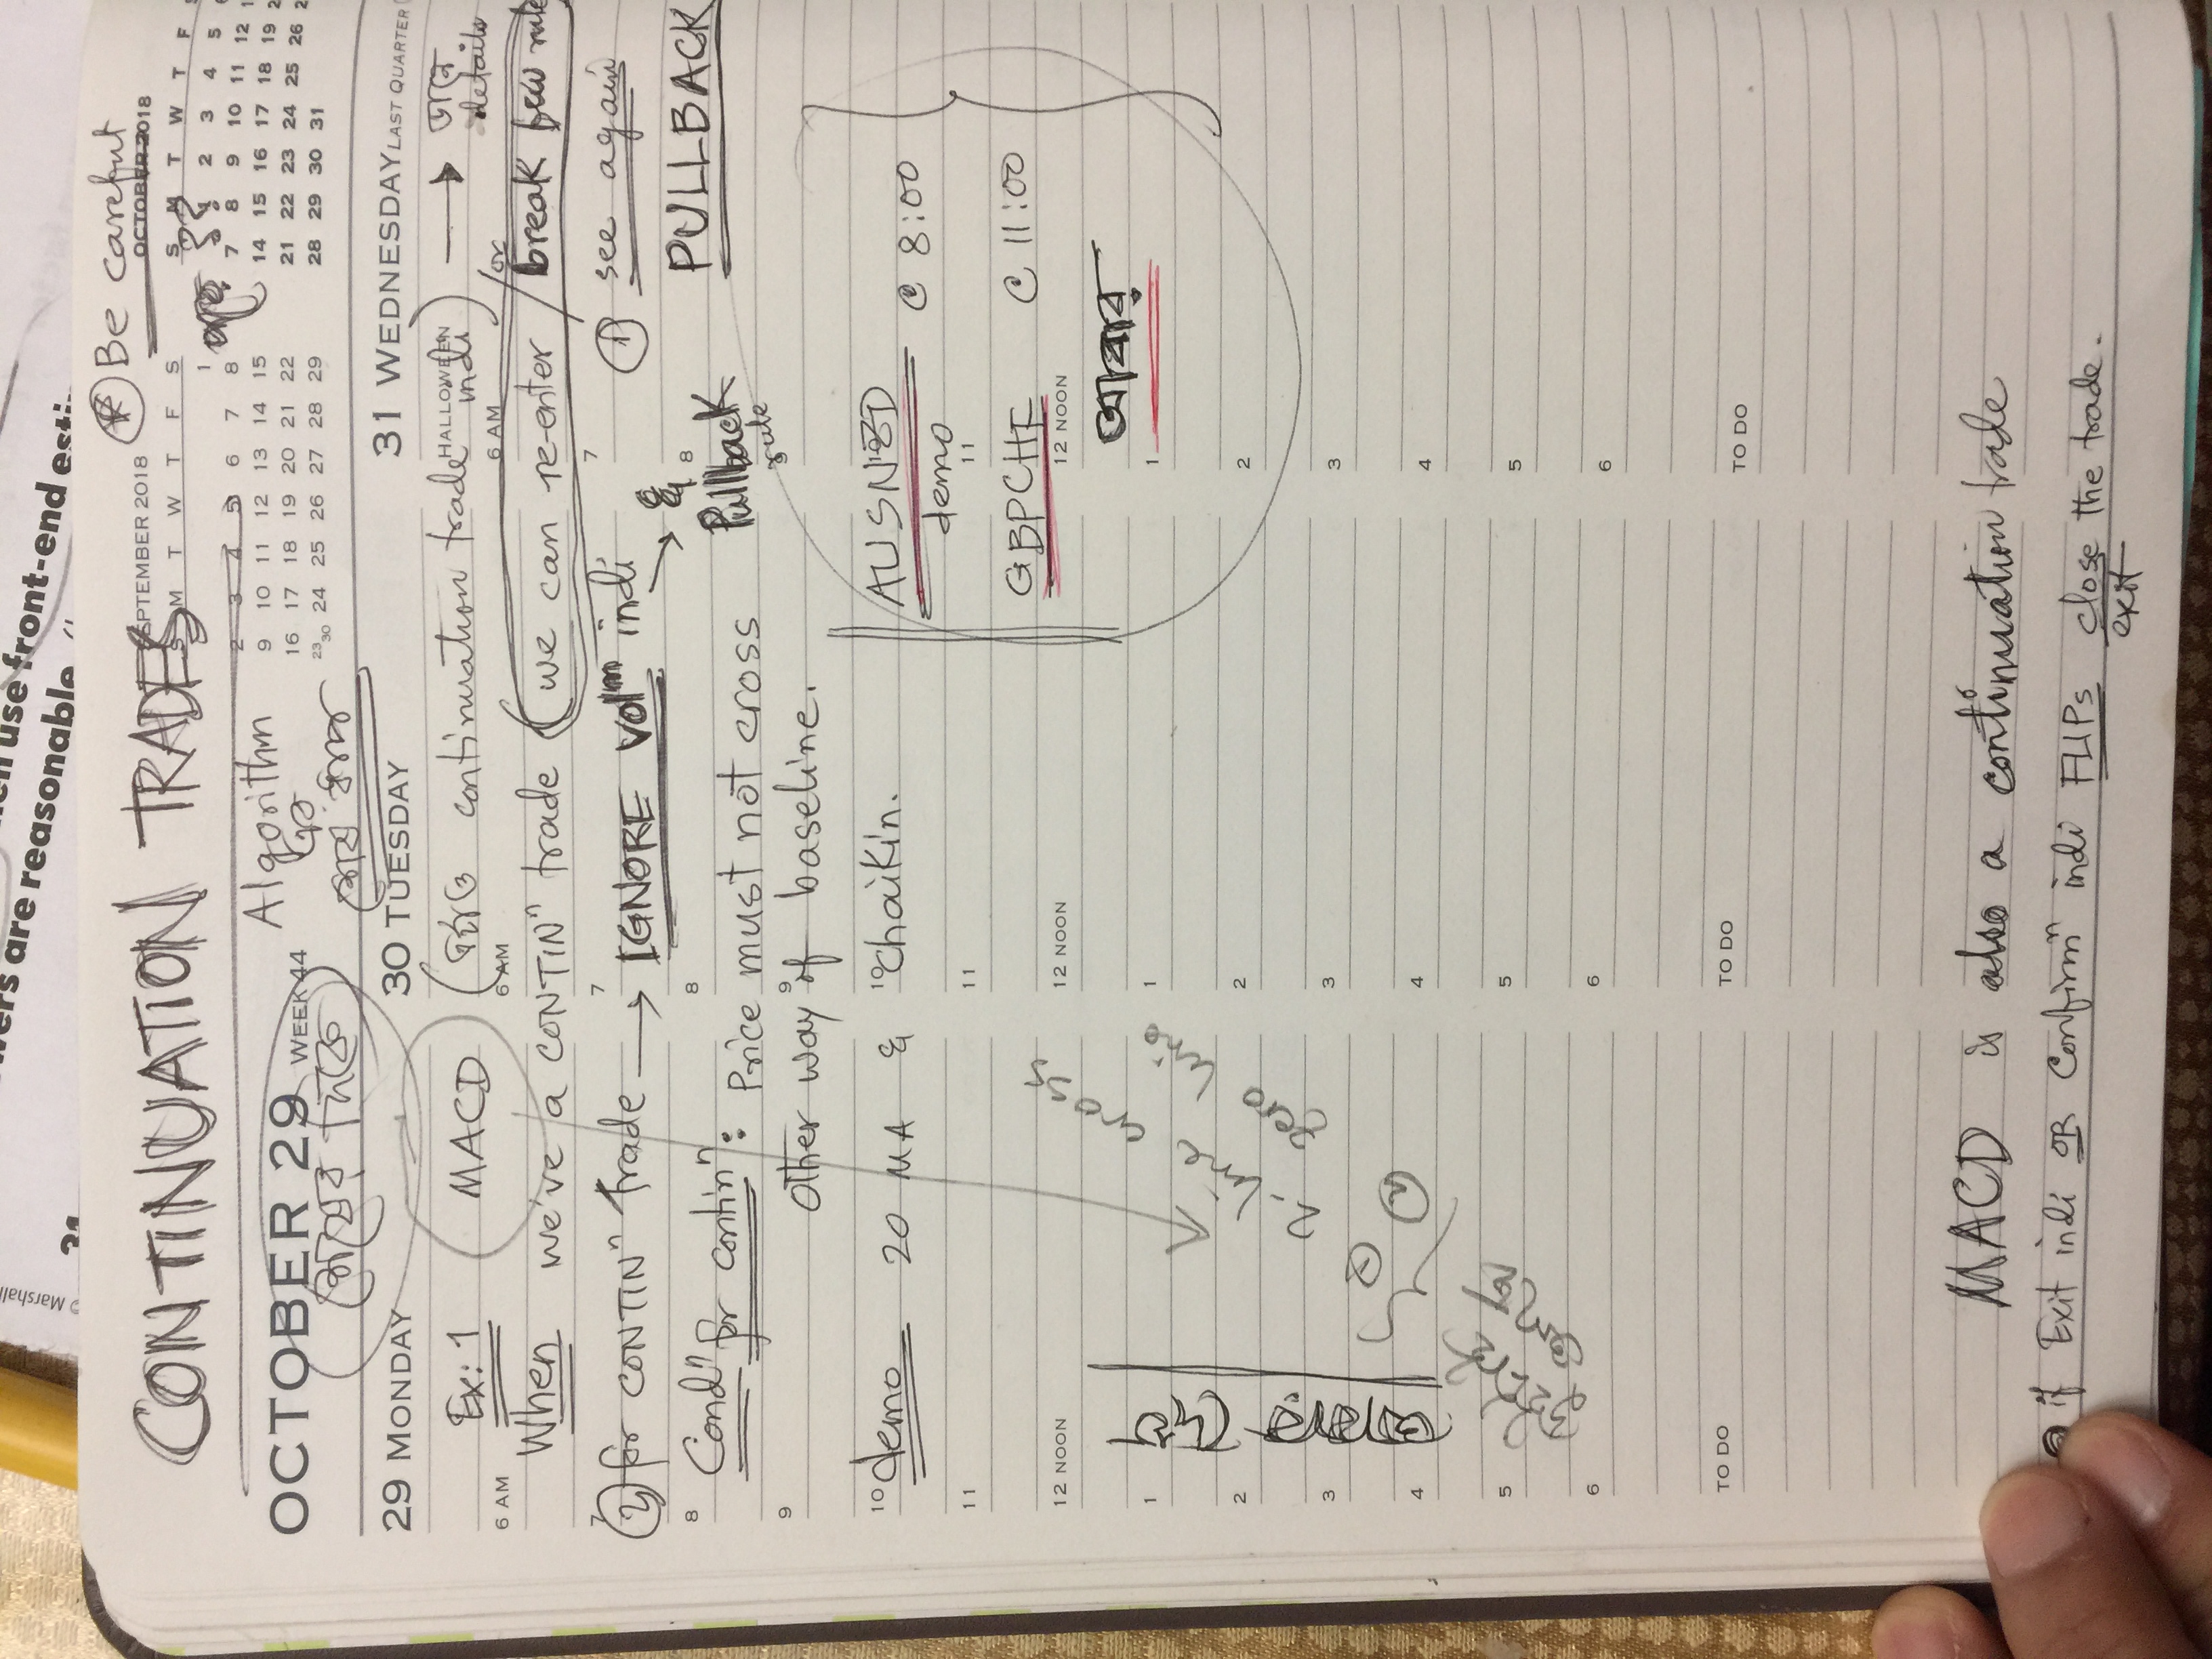 © Marshall
wers are reasonable
en use front-end esti
31
* Be careful
CONTINUATION TRADES
SEPTEMBER 2018
S M T W T F S
1
2 3 4 5 6 7 8
9 10 11 12 13 14 15
16 17 18 19 20 21 22
23 30 24 25 26 27 28 29
OCTOBER 2018
S M T W T F
1 2 3 4 5
7 8 9 10 11 12
14 15 16 17 18 19
21 22 23 24 25 26
28 29 30 31
??
OCTOBER 29 WEEK 44
শেষের দিকে
Algorithm
এর
শেষ
29 MONDAY
30 TUESDAY
31 WEDNESDAY LAST QUARTER
HALLOWEEN
Ex: 1 MACD ( continuation trade indi) → ডানে
details
6 AM
6 AM
6 AM
When we've a CONTINⁿ trade (we can re-enter / or break few rule
7
7
7
② for CONTINⁿ Trade → IGNORE Volᵐ indi
① see again
PULLBACK
→ &
Pullback
rule
8
8
8
Condⁿ for continⁿ: Price must not cross
other way of baseline.
9
9
10
10
demo 20 MA & Chaikin.
AUSNZD @ 8:00
demo
11
11
11
GBPCHF @ 11:00
12 NOON
12 NOON
12 NOON
আবার
1
1
1
আবার দেখ
① 2-line cross
② zero line
2
2
2
3
3
3
4
4
4
5
5
5
6
6
6
TO DO
TO DO
TO DO
MACD is also a continuation trade
if Exit indi OR Confirmⁿ indi FLIPs close the trade.
exit